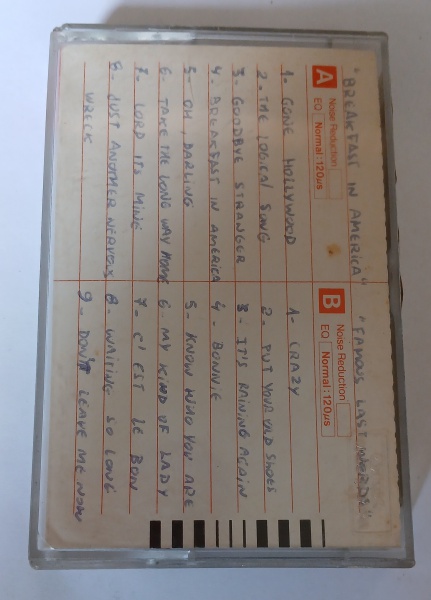 "BREAKFAST IN AMERICA" "FAMOUS LAST WORDS"
A Noise Reduction
EQ Normal:120µs
1- GONE HOLLYWOOD
2- THE LOGICAL SONG
3- GOODBYE STRANGER
4- BREAKFAST IN AMERICA
5- OH, DARLING
6- TAKE THE LONG WAY HOME
7- LORD ITS MINE
8- JUST ANOTHER NERVOUS
WRECK
B Noise Reduction
EQ Normal:120µs
1- CRAZY
2- PUT YOUR OLD SHOES
3- IT'S RAINING AGAIN
4- BONNIE
5- KNOW WHO YOU ARE
6- MY KIND OF LADY
7- C'EST LE BON
8- WAITING SO LONG
9- DON'T LEAVE ME NOW